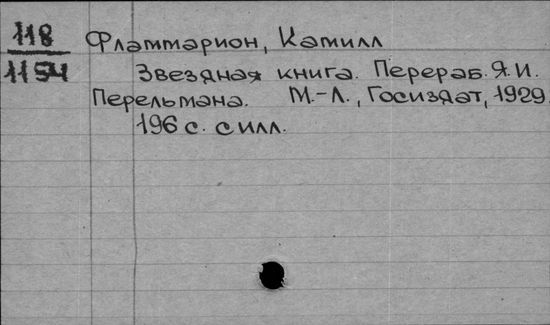 118 Фламмарион, Камилл
1154 Звездная книга. Перераб. Я.И.
Перельмана. М.-Л., Госиздат, 1929
196 с. с илл.